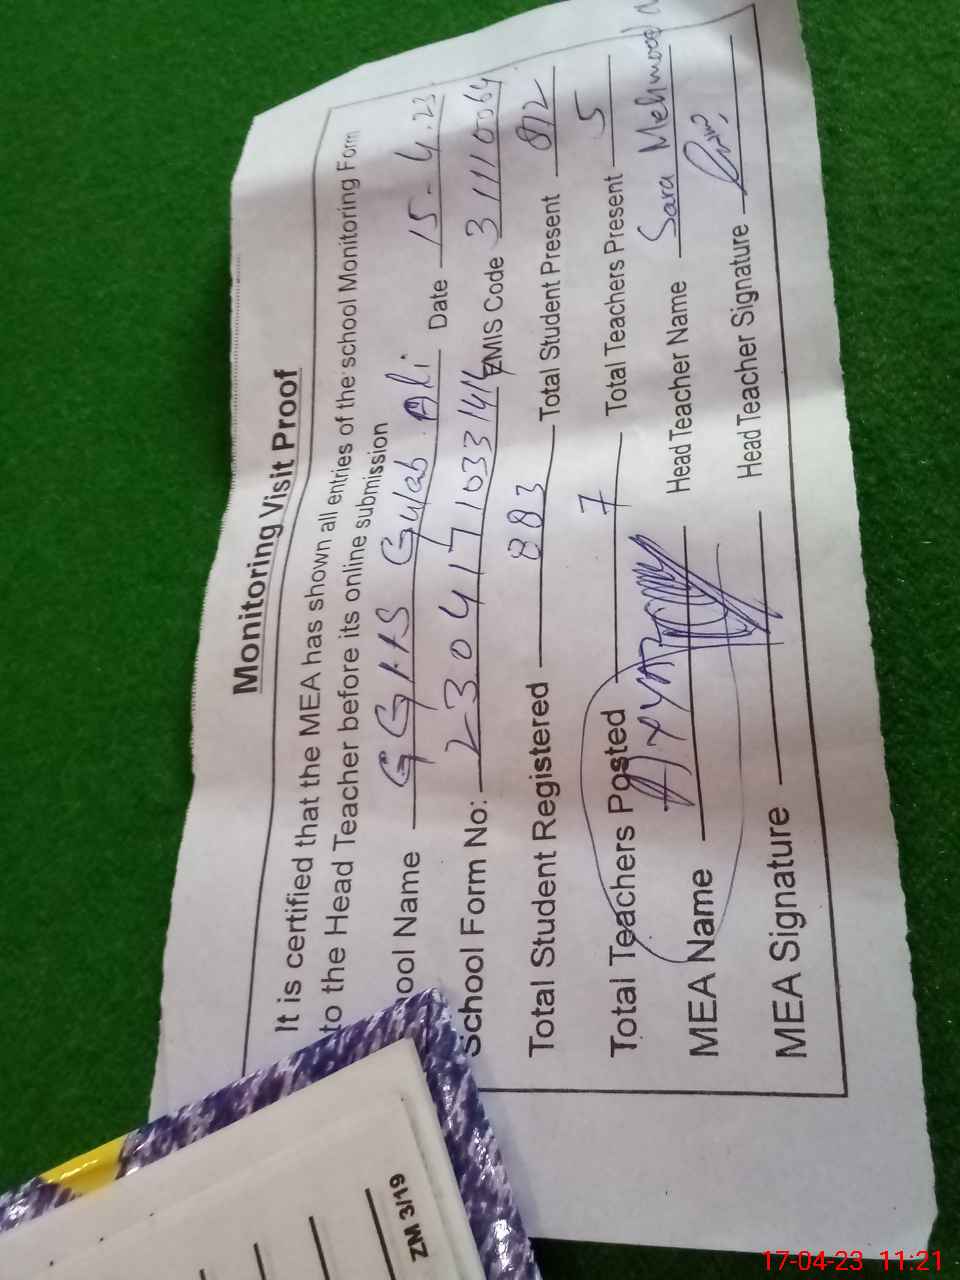 Monitoring Visit Proof
It is certified that the MEA has shown all entries of the school Monitoring Form
to the Head Teacher before its online submission
ool Name GGHS Gulab Ali Date 15-4.23
School Form No: 2304171033141 EMIS Code 31110064
Total Student Registered 883 Total Student Present 812
Total Teachers Posted 7 Total Teachers Present 5
MEA Name Head Teacher Name Sara Mehmood
MEA Signature Head Teacher Signature
ZM 3/19
17-04-23 11:21